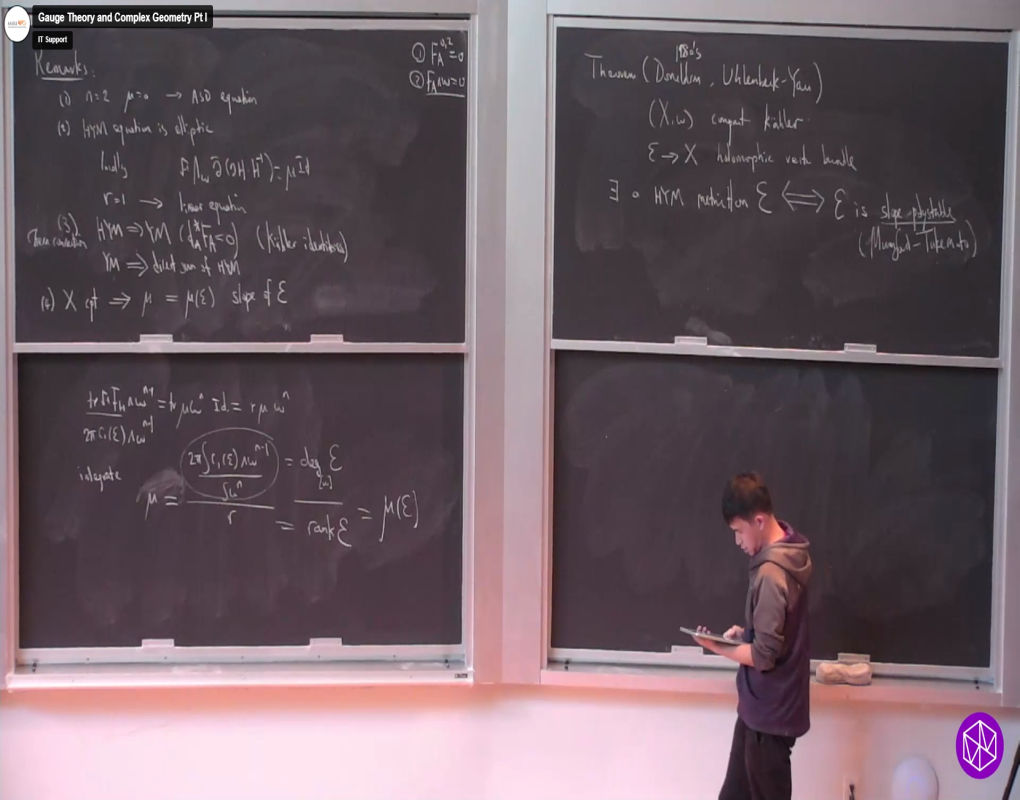 Gauge Theory and Complex Geometry Pt I
IT Support
Remarks:
(1) n=2 μ=0 → ASD equation
(2) HYM equation is elliptic
locally Λ_ω ∂̄(∂H·H⁻¹)=μId
r=1 → linear equation
(3) HYM ⟹ YM (d_A^* F_A=0) (Kähler identities)
Chern connection
YM ⟹ direct sum of HYM
(4) X cpt ⟹ μ = μ(ℰ) slope of ℰ
① F_A^{0,2}=0
② F_A∧ω=0
tr F_H∧ω^{n-1}=tr μω^n Id = rμω^n
2πc₁(ℰ)∧ω^{n-1}
integrate
μ = (2π∫c₁(ℰ)∧ω^{n-1} / ∫ω^n) / r = deg_{[ω]} ℰ / rank ℰ = μ(ℰ)
1980's
Theorem (Donaldson, Uhlenbeck-Yau)
(X,ω) compact Kähler
ℰ→X holomorphic vector bundle
∃ a HYM metric H on ℰ ⟺ ℰ is slope polystable
(Mumford-Takemoto)